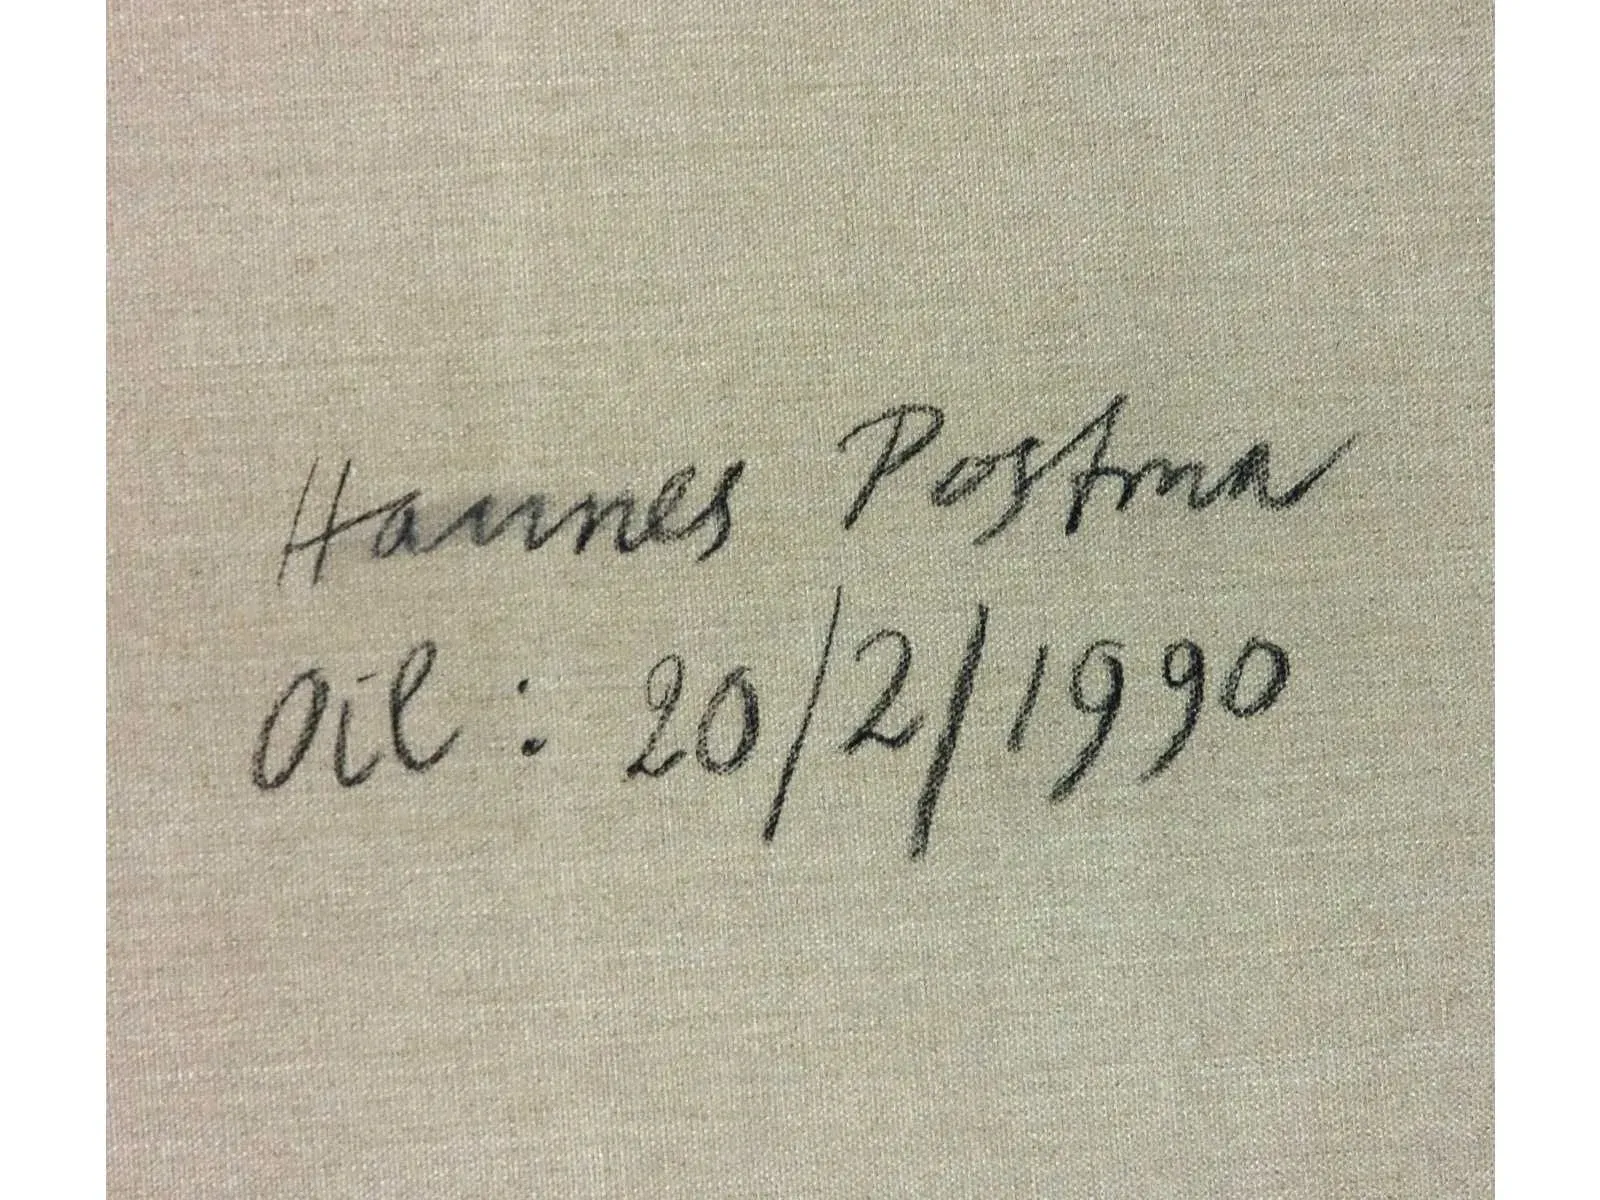 Hannes Postma
Oil : 20/2/1990